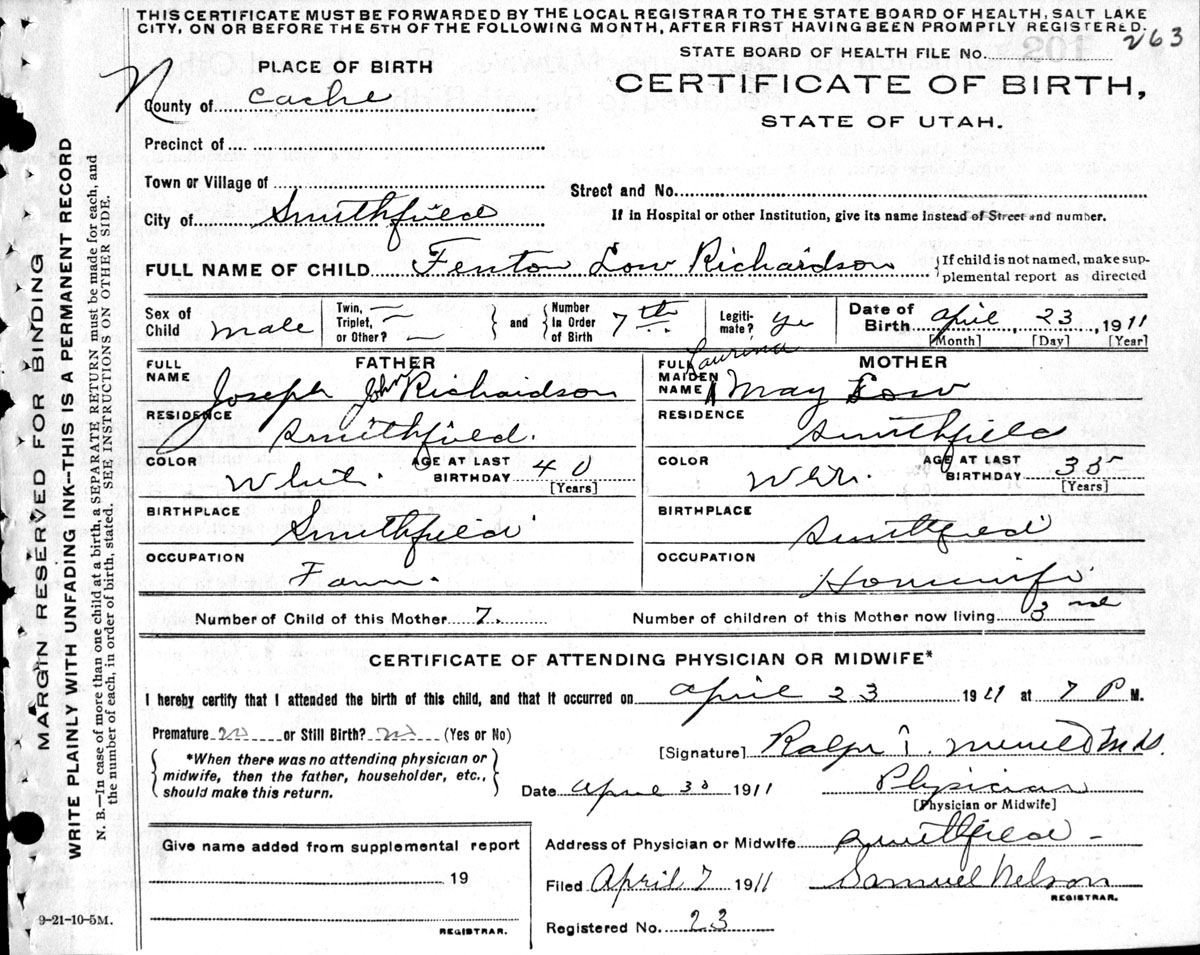 THIS CERTIFICATE MUST BE FORWARDED BY THE LOCAL REGISTRAR TO THE STATE BOARD OF HEALTH, SALT LAKE
CITY, ON OR BEFORE THE 5TH OF THE FOLLOWING MONTH, AFTER FIRST HAVING BEEN PROMPTLY REGISTERED.
263
STATE BOARD OF HEALTH FILE No.
PLACE OF BIRTH
CERTIFICATE OF BIRTH,
STATE OF UTAH.
County of Cache
Precinct of
Town or Village of
Street and No.
City of Smithfield
If in Hospital or other Institution, give its name instead of Street and number.
FULL NAME OF CHILD Fenton Low Richardson {If child is not named, make sup-
plemental report as directed
Sex of Child male
Twin, Triplet, or Other? and Number in Order of Birth 7th
Legiti-mate? Yes
Date of Birth April, 23, 1911
[Month] [Day] [Year]
FATHER
FULL NAME Joseph John Richardson
RESIDENCE Smithfield.
COLOR White. AGE AT LAST BIRTHDAY 40 [Years]
BIRTHPLACE Smithfield
OCCUPATION Farm.
MOTHER
FULL MAIDEN NAME Laurina May Low
RESIDENCE Smithfield
COLOR AGE AT LAST BIRTHDAY 35 [Years]
BIRTHPLACE Smithfield
OCCUPATION Housewife
Number of Child of this Mother 7. Number of children of this Mother now living 3
CERTIFICATE OF ATTENDING PHYSICIAN OR MIDWIFE*
I hereby certify that I attended the birth of this child, and that it occurred on April 23 1911 at 7 P M.
Premature no or Still Birth? no (Yes or No)
*When there was no attending physician or
midwife, then the father, householder, etc.,
should make this return.
[Signature] Ralph T. Merrill M.D.
Date April 30 1911 Physician
[Physician or Midwife]
Give name added from supplemental report
19
REGISTRAR.
Address of Physician or Midwife Smithfield
Filed April 7 1911 Samuel Nelson
REGISTRAR.
Registered No. 23
9-21-10-5M.
MARGIN RESERVED FOR BINDING
WRITE PLAINLY WITH UNFADING INK--THIS IS A PERMANENT RECORD
N. B.—In case of more than one child at a birth, a SEPARATE RETURN must be made for each, and
the number of each, in order of birth, stated. SEE INSTRUCTIONS ON OTHER SIDE.